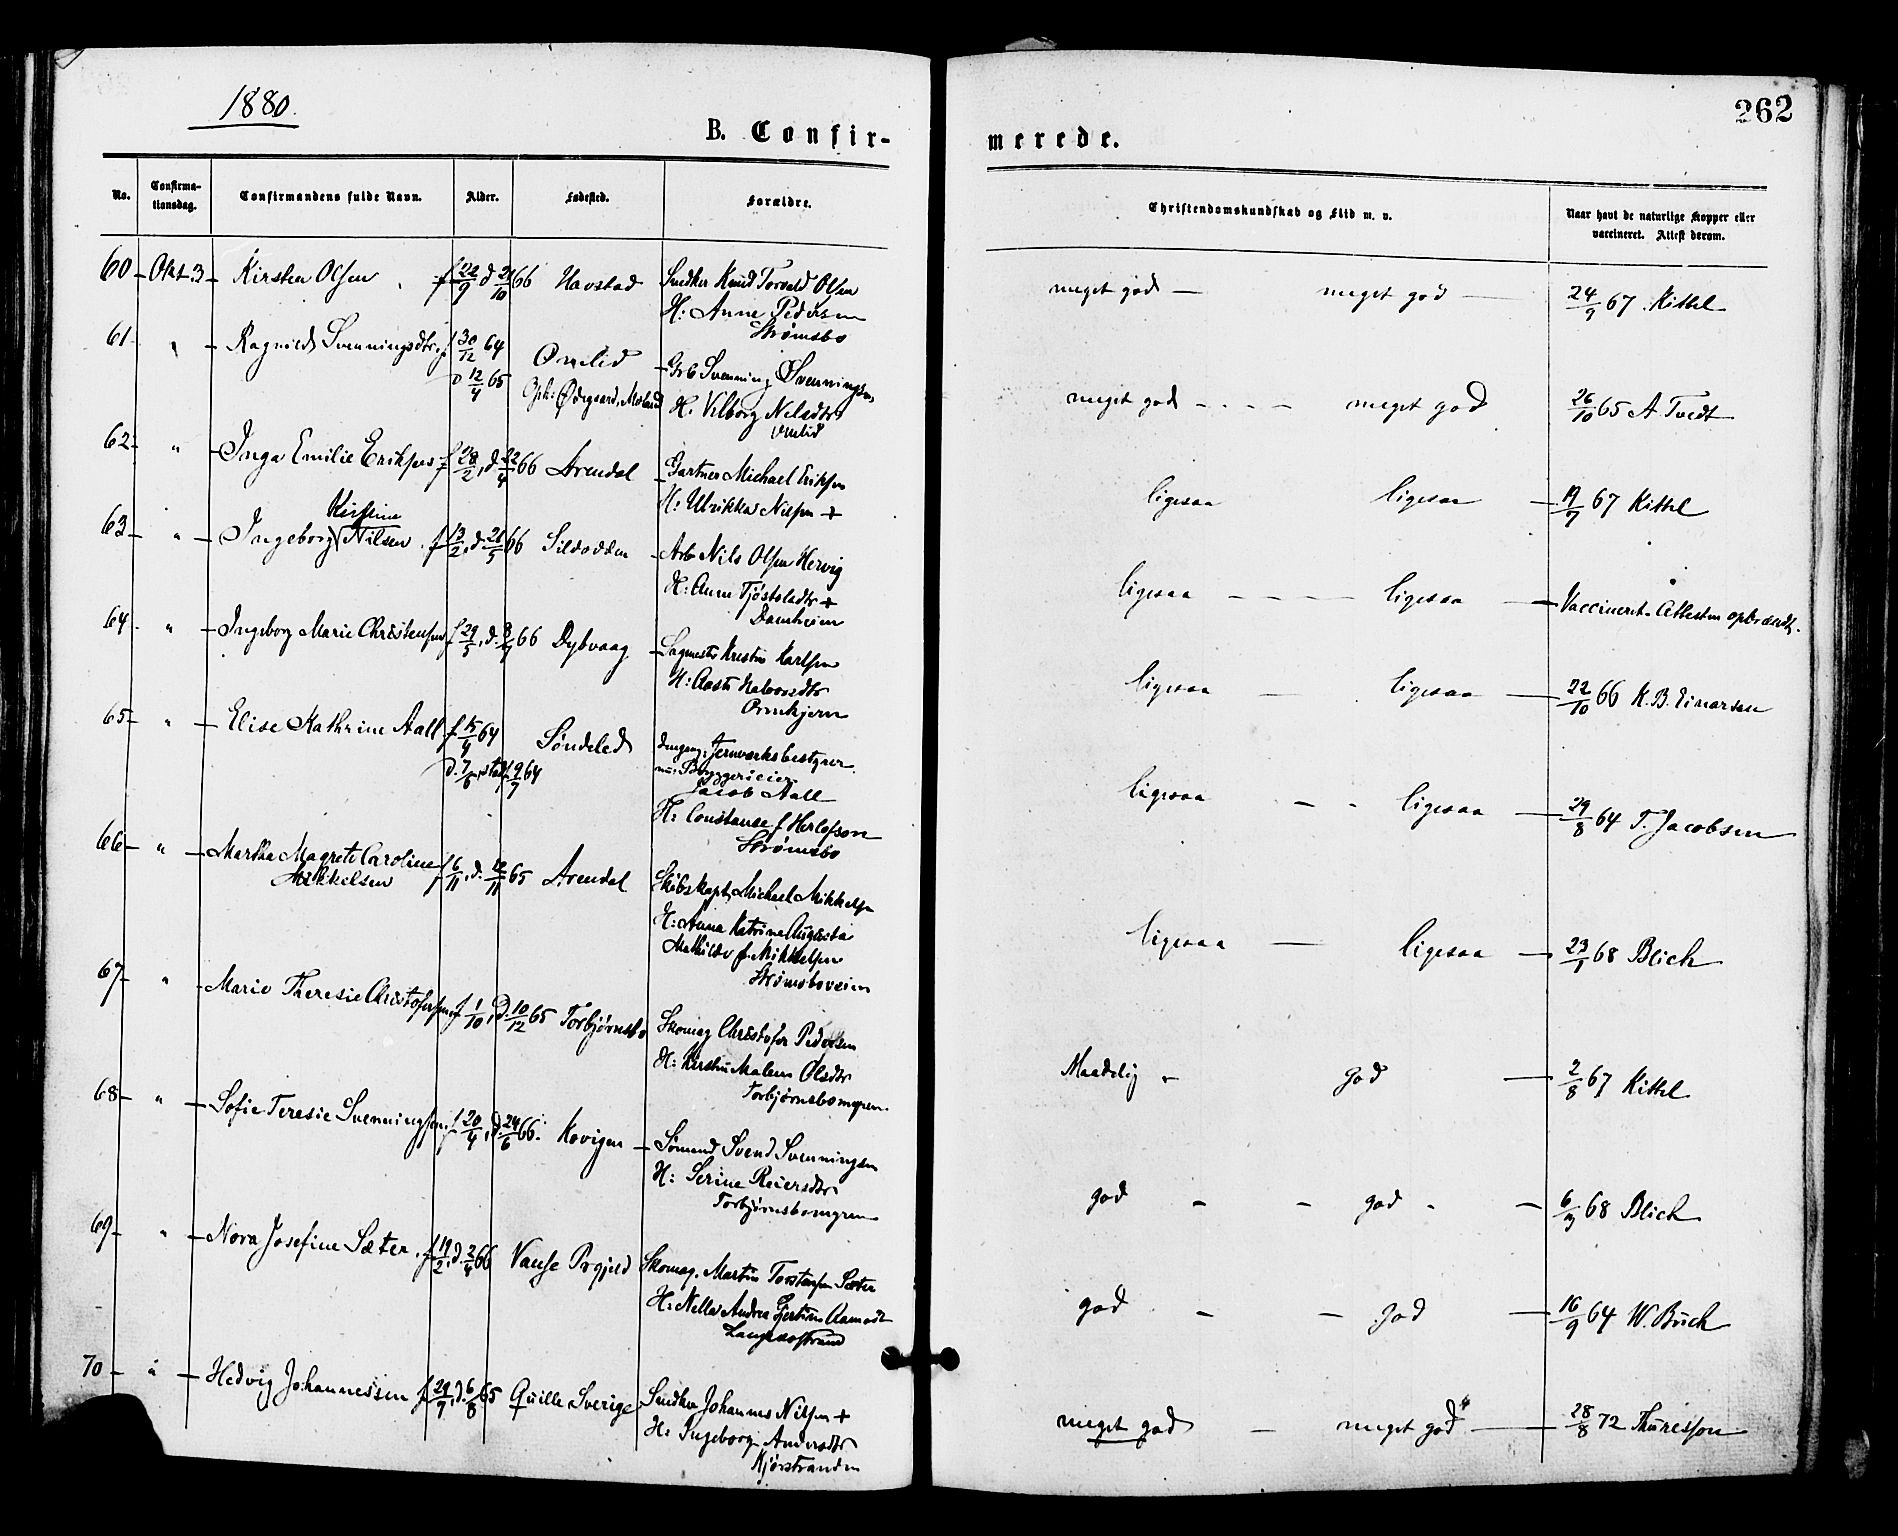 1880.
262
B. Confir-
merede.
No.
Confirma-
tionsdag.
Confirmandens fulde Navn.
Alder.
Fødested.
Forældre.
Christendomskundskab og Flid m. v.
Naar havt de naturlige Kopper eller
vaccineret. Attest derom.
60 - Okt. 3 - Kirsten Olsen f 22/9 d 21/10 66 Havstad Snedker Knud Torvald Olsen
H: Anne Pedersen
Strømsbo
meget god - meget god - 24/9 67 Kittel
61 " - Ragnild Svenningsdtr. f 30/12 64
d 12/4 65
Omlid
Oph: Ødegaard, Moland
Grb Svenning Svenningsen
H: Vilborg Nilsdtr
Omlid
meget god - - - - meget god 26/10 65 A. Tvedt
62 - " - Inga Emilie Eriksen f 28/2, d. 22/4 66 Arendal Gartner Michael Eriksen
H: Ulrikka Nilsen +
ligesaa ligesaa - 19/7 67 Kittel
63 - " - Ingeborg Kirstine Nilsen f 13/2, d. 21/5 66 Sildodden - Arb Nils Olsen Hervig
H: Anne Tjøstolsdtr +
Damheim
ligesaa - - - - ligesaa - Vaccineret - Attesten opbrændt.
64 - " - Ingeborg Marie Christensen f 29/5, d. 8/7 66 Dybvaag - Sagmester Kristen Karlsen
H: Aaste Halvorsdtr
Ormkjern
ligesaa - ligesaa - 22/10 66 K. B. Einarsen
65 - " - Elise Kathrine Aall f 15/4 64
Søndeled
Jernværksbestyrer
nu: Bryggerieier
Jacob Aall
H: Constance f Herlofson
Strømsbo
ligesaa - - ligesaa - 29/8 64 T. Jacobsen
66 - " - Martha Magrete Caroline
Mikkelsen
f 6/11, d. 12/11 65 Arendal Skibskapt. Michael Mikkelsen
H: Anna Katrine Augusta
Mathilde f. Mikkelsen
Strømsboveien
ligesaa - ligesaa - 23/1 68 Blich
67 - " - Marie Theresie Christofersen f 1/10, d. 10/12 65 Torbjørnsbo Skomag Christofer Pedersen
H: Kirstine Malene Olsdtr
Torbjørnsbomyren
Maadelig - god - 2/8 67 Kittel
68 - " - Sofie Teresie Svenningsen f 20/4, d. 24/6 66. Kovigen - Sømand Svend Svenningsen
H: Serine Reiersdtr
Torbjørnsbomyren
god - - god - - 6/3 68 Blich
69 - " - Nora Josefine Sæter. f 19/2, d. 2/4 66 Vanse Prgjeld Skomag. Martin Torstensen Sæter
H: Nella Andrea Gjertine Aamodt
Langsæstrand
god - - god - 16/9 64 W. Buch
70 - " - Hedvig Johannessen f 29/7, d. 6/8 65 Quille Sverige Snedker Johannes Nilsen +
H: Ingeborg Andersdtr
Kjørstranden
meget god - meget god - 28/8 72 Thuresson